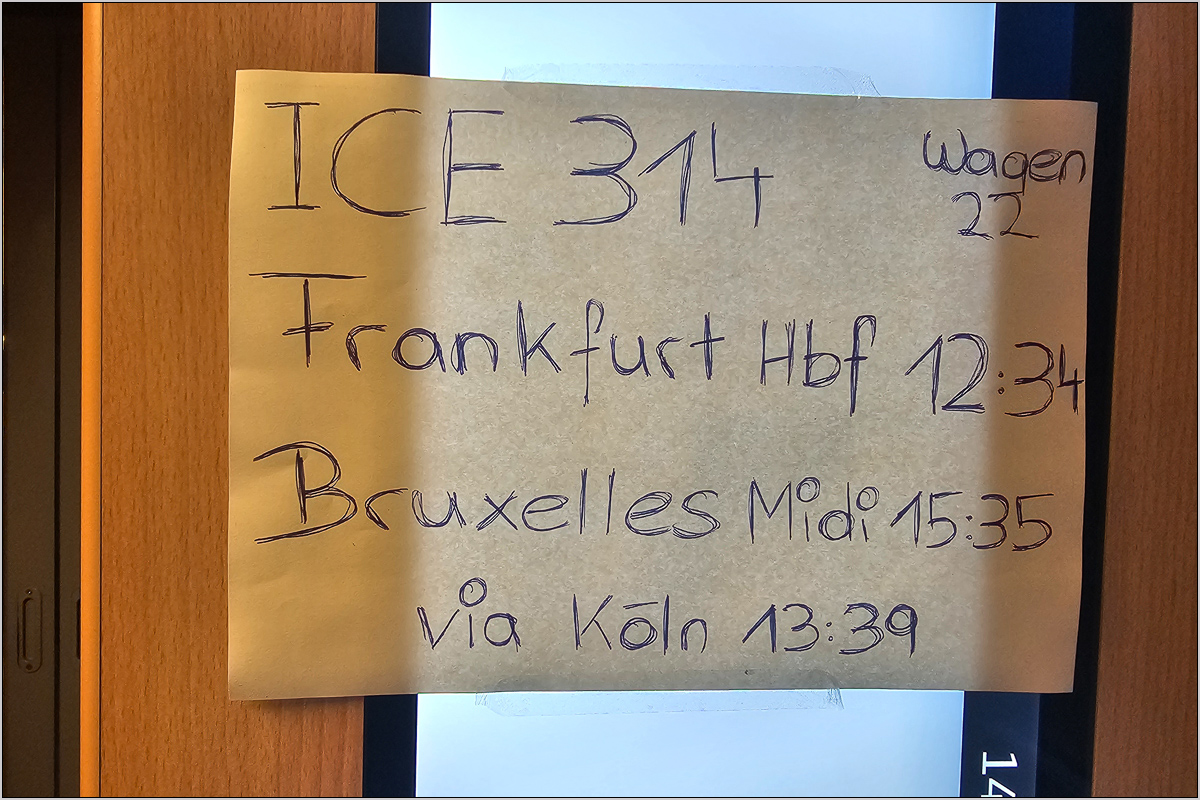 ICE 314
Wagen
22
Frankfurt Hbf 12:34
Bruxelles Midi 15:35
via Köln 13:39
14